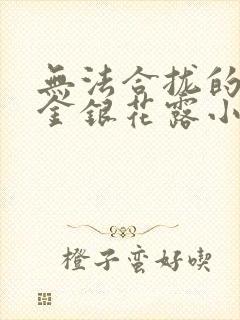 無法合拢的
金銀花露小
橙子蛮好喫